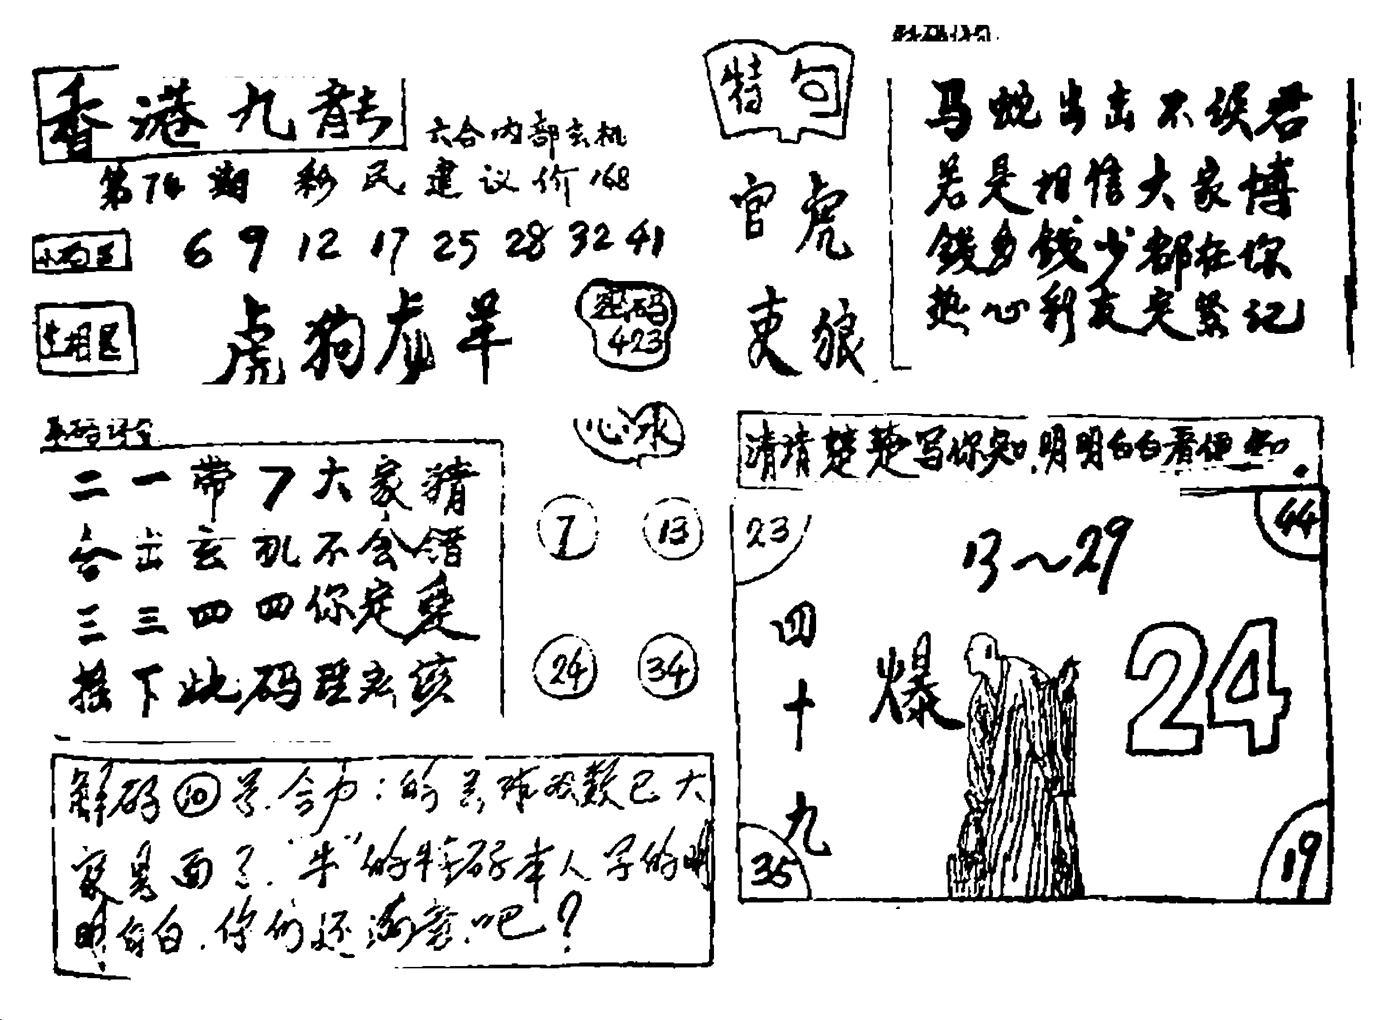 香港九龍
六合内部玄机
第74期 彩民建议价168
小码王 6 9 12 17 25 28 32 41
生相区 虎狗龙羊
密码
423
特句
官虎
吏狼
马蛇出击不误君
若是相信大家博
錢多錢少都在你
热心彩友定紧记
二一带7大家猜
合出玄机不会错
三三四四你定
下此码
心水
7 13
24 34
清清楚楚写你知,明明白白看便知.
23 44
13~29
四十九
爆
24
35 19
解码⑩
"牛"的特码本人写的明
明白白.你们还满意吧?